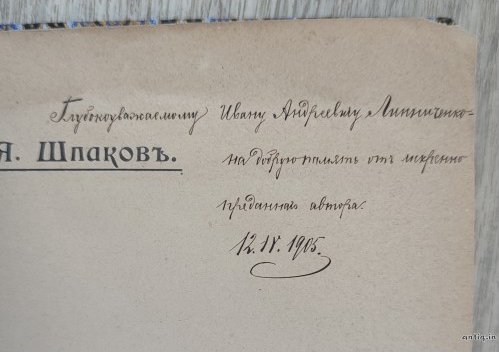 Глубокоуважаемому Ивану Андреевичу Линниченко-
А. Шпаковъ.
на добрую память отъ искренно
преданнаго автора.
12. IV. 1905.
antiq.in